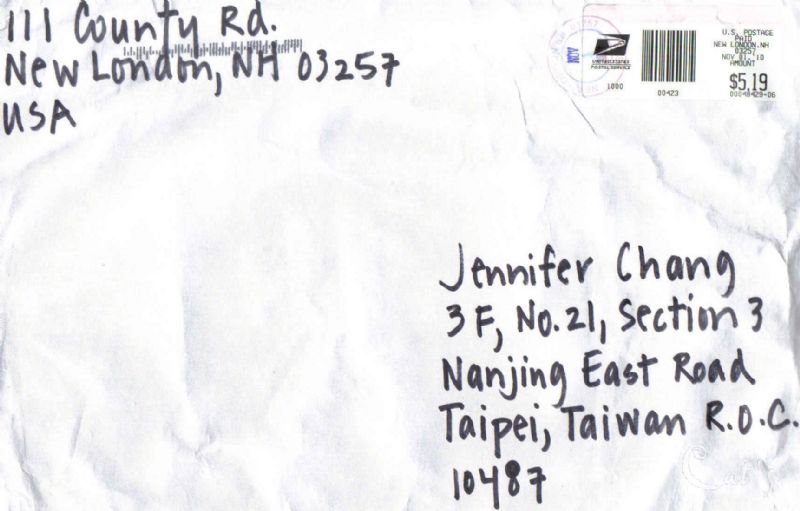 111 County Rd.
New London, NH 03257
USA
U.S. POSTAGE
PAID
NEW LONDON.NH
03257
NOV 01.'10
AMOUNT
$5.19
00048429-06
UNITED STATES
POSTAL SERVICE
1000
00423
Jennifer Chang
3F, No.21, Section 3
Nanjing East Road
Taipei, Taiwan R.O.C.
10487